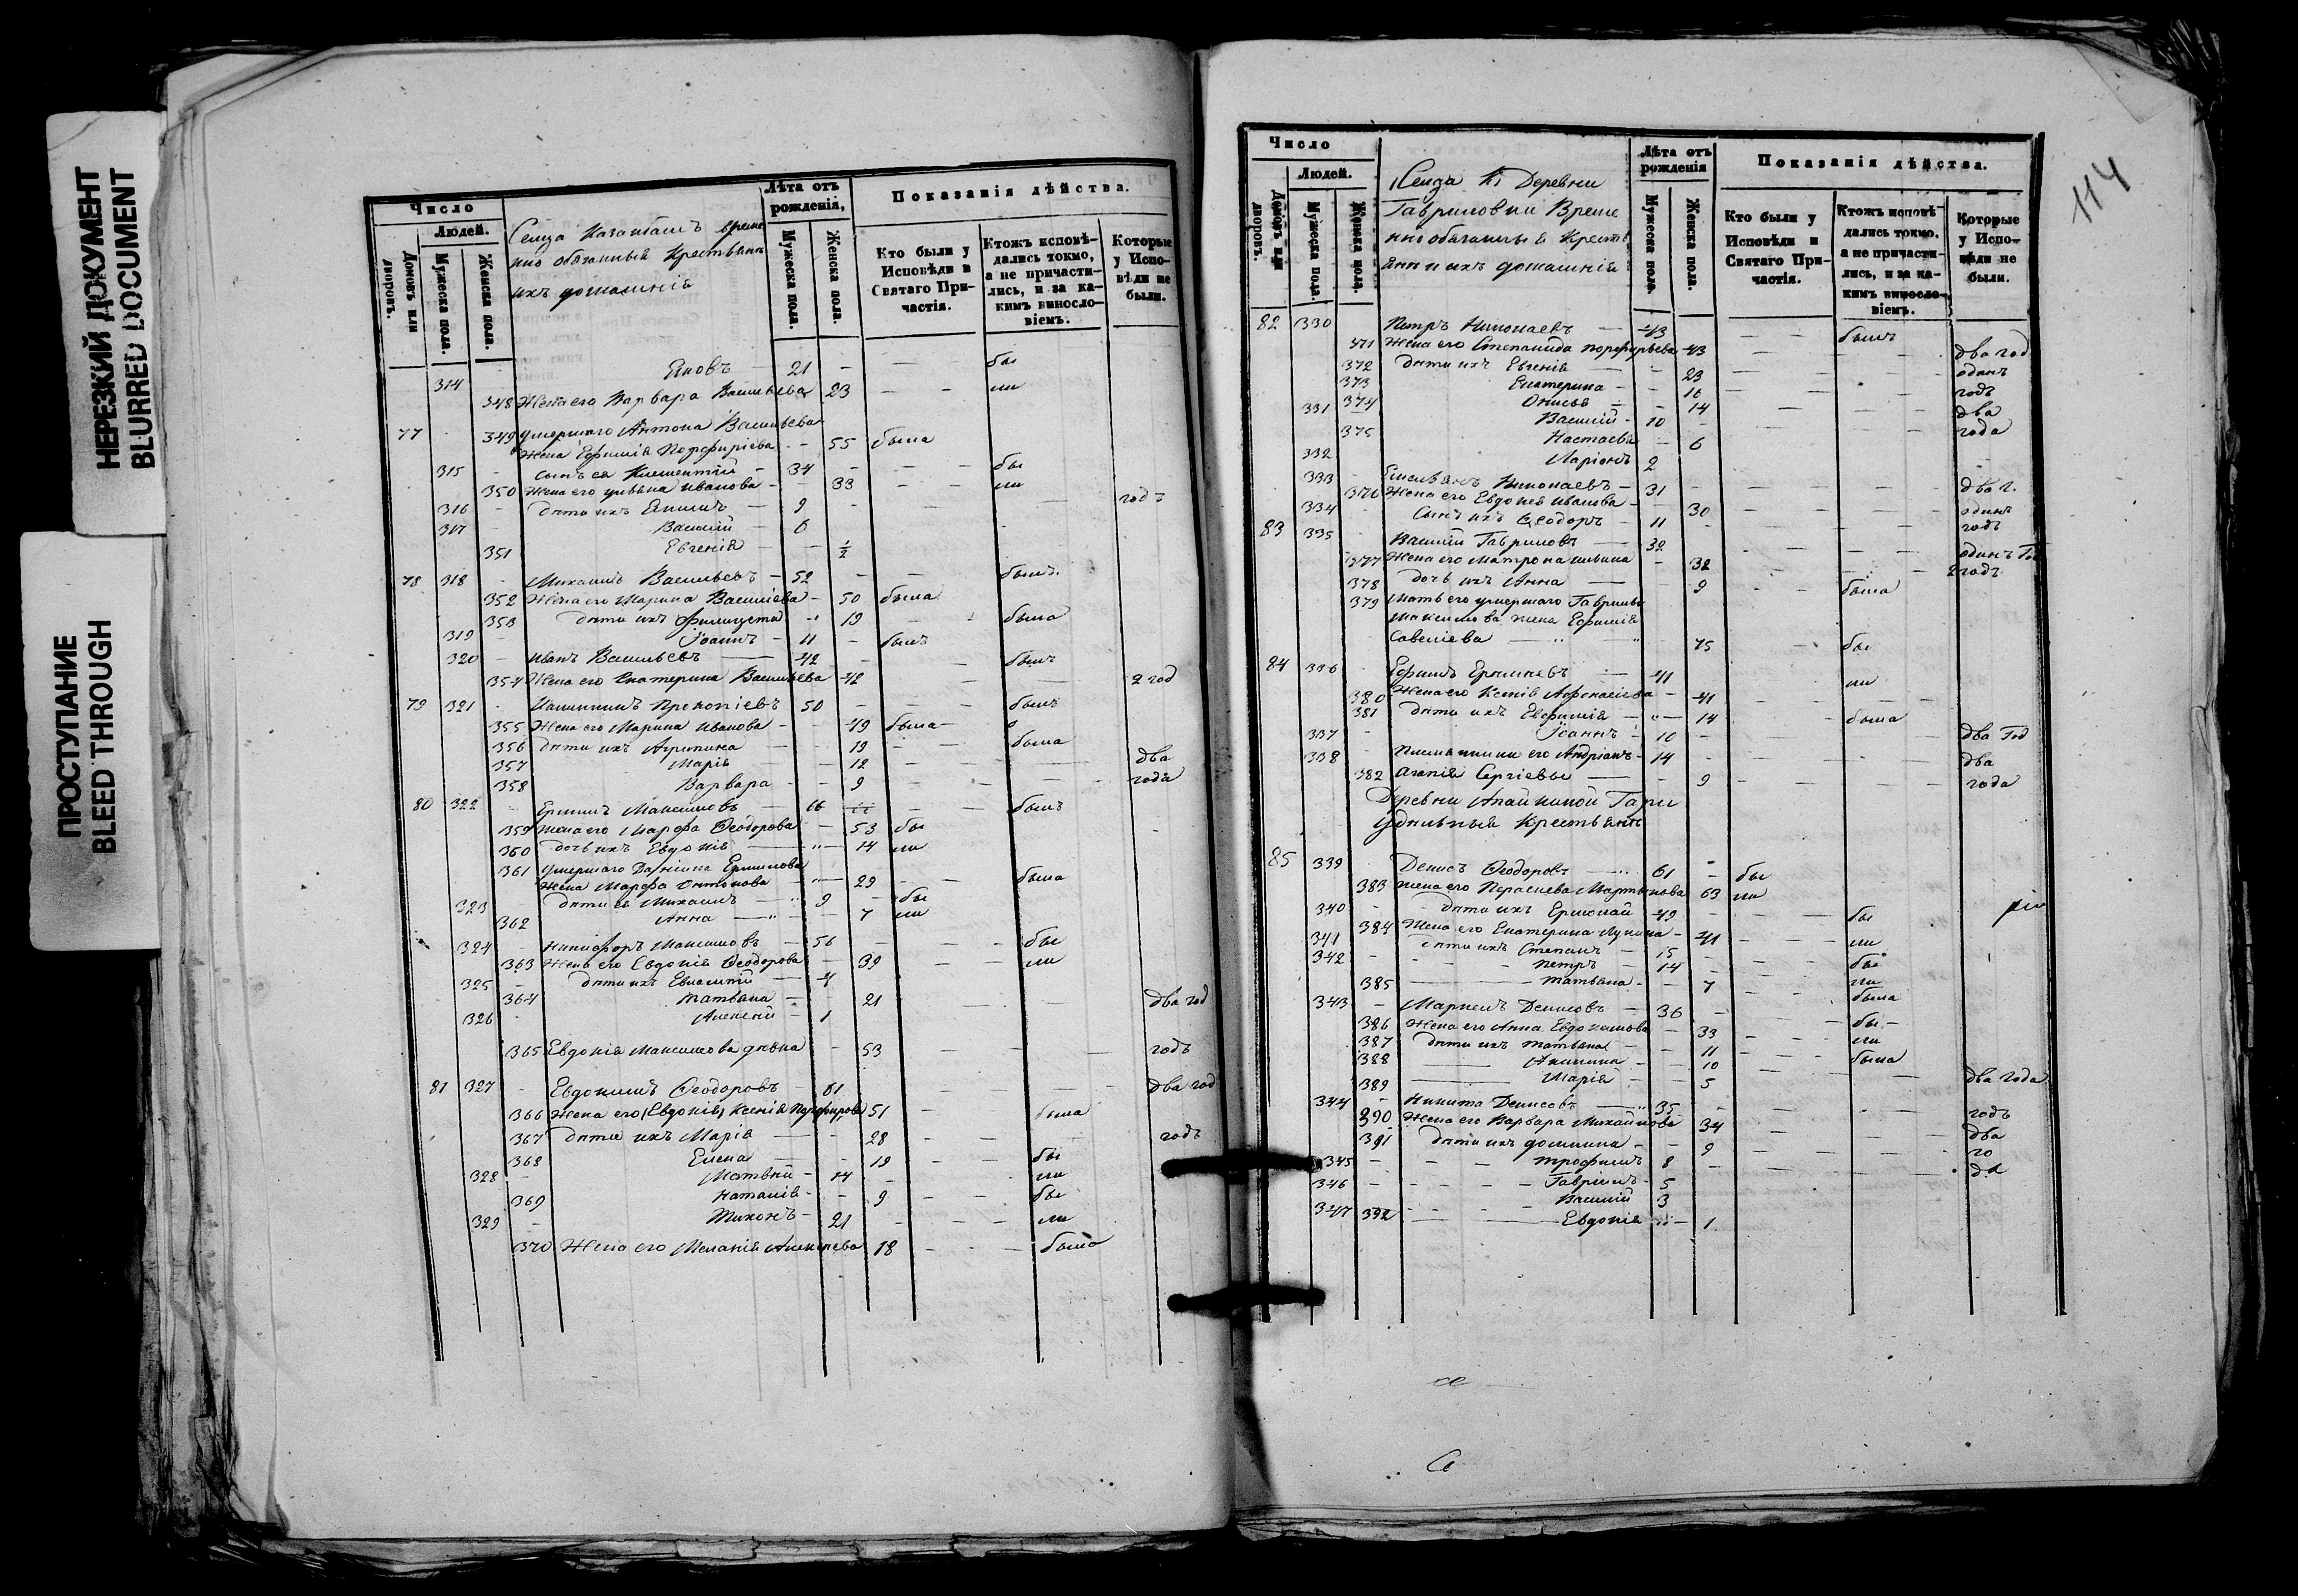 НЕРЕЗКИЙ ДОКУМЕНТ
BLURRED DOCUMENT
ПРОСТУПАНИЕ
BLEED THROUGH
Число
Людей.
Домовъ или дворовъ.
Мужеска пола.
Женска пола.
Села Казакбашъ време
нно обязанныя Крестьяне
ихъ домашнія
Лѣта отъ рожденія,
Мужеска пола.
Женска пола.
Показанія дѣйства.
Кто были у Исповѣди и Святаго Причастія.
Ктожъ исповѣдались токмо, а не причастились, и за каким винословіемъ.
Которые у Исповѣди не были.
314 Яковъ 21 бы
348 Жена его Варвара Васильева 23 ли
77 349 умершаго Антона Васильева
жена Ефимія Порфиріева 55 была
315 сынъ ея Климентій 34 бы
350 Жена его Ульяна Иванова 33 ли
316 дѣти ихъ 9 годъ
317 Василій 6
351 Евгенія ½
78 318 Михаилъ Васильевъ 52 былъ
352 Жена его Марина Васильева 50 была
353 дѣти ихъ Филицета 19 была
319 Іоаннъ 11 былъ
320 Иванъ Васильевъ 42 былъ
354 Жена его Екатерина Васильева 42 2 год
79 321 Прокопіевъ 50 былъ
355 Жена его Марина Иванова 49 была
356 дѣти ихъ Агрипина 19 была
357 Марія 12 два
358 Варвара 9 года
80 322 Ермилъ Максимовъ 66 былъ
359 Жена его Марфа Ѳеодорова 53 бы
360 дочь ихъ Евдокія 14 ли
361 Умершаго Ермилова
жена Марфа Антонова 29 была
323 дѣти ея Михаилъ 9 бы
362 Анна 7 ли
324 Никифоръ Максимовъ 56 бы
363 Жена его Евдокія Ѳеодорова 39 ли
325 дѣти ихъ 4
364 Татьяна 21 два год
326 Алексѣй 1
365 Евдокія Максимова дѣвка 53 годъ
81 327 Евдокимъ Ѳеодоровъ 61 два год
366 Жена его (Евдокія) Ксенія Порфирова 51 была
367 дѣти ихъ Марія 28 годъ
368 Елена 19 бы
328 Матвѣй 14 ли
369 Наталія 9 бы
329 Тихонъ 21 ли
370 Жена его Меланія Алексѣева 18 была
114
Число
Людей.
Домовъ или дворовъ.
Мужеска пола.
Женска пола.
Села К. Деревни
Гавриловки Време
нно обязанныя Кресть
яни и ихъ домашнія
Лѣта отъ рожденія
Мужеска пола.
Женска пола.
Показанія дѣйства.
Кто были у Исповѣди и Святаго Причастія.
Ктожъ исповѣдались токмо, а не причастились, и за каким винословіемъ.
Которые у Исповѣди не были.
82 330 Петръ Николаевъ 43 былъ
371 Жена его Степанида Порфирьева 43 два год
372 дѣти ихъ Евгенія 23 одинъ
373 Екатерина 16 годъ
374 Онисья 14 два
331 Василій 10 года
375 Настасья 6
332 Ларіонъ 2
333 Николаевъ 31 два г.
376 Жена его Евдокія Иванова 30 одинъ
334 Сынъ ихъ Ѳеодоръ 11 годъ
83 335 Василій Гавриловъ 32 одинъ Го
377 Жена его Матрона 32 2 годъ
378 дочь ихъ Анна 9 была
379 Мать его умершаго Гавриила
Максимова жена Ефимія
Савеліева 75 бы
84 336 Ефимъ 41 ли
380 Жена его Ксенія Афонасіева 41
381 дѣти ихъ Евфимія 14 была
337 Іоаннъ 10 два год
338 Племянники его Андріанъ 14 два
382 Агапія Сергіевы 9 года
Деревни Апайкиной Гари
Удѣльныя Крестьяне
85 339 Денисъ Ѳеодоровъ 61 бы
383 жена его Параскева Мартынова 63 ли
340 дѣти ихъ Ермолай 49 бы
384 Жена его Екатерина Лукина 41 ли
341 дѣти ихъ Степанъ 15 бы
342 Петръ 14 ли
385 Татьяна 7 была
343 Маркелъ Денисовъ 36 бы
386 Жена его Анна Евдокимова 33 ли
387 дѣти ихъ Татьяна 11 была
388 Акилина 10
389 Марія 5 два года
344 Никита Денисовъ 35 годъ
390 Жена его Варвара Михайлова 34 два
391 дѣти ихъ Домнина 9 го
345 Трофимъ 8 да
346 Гавріилъ 5
Василій 3
347 392 Евдокія 1